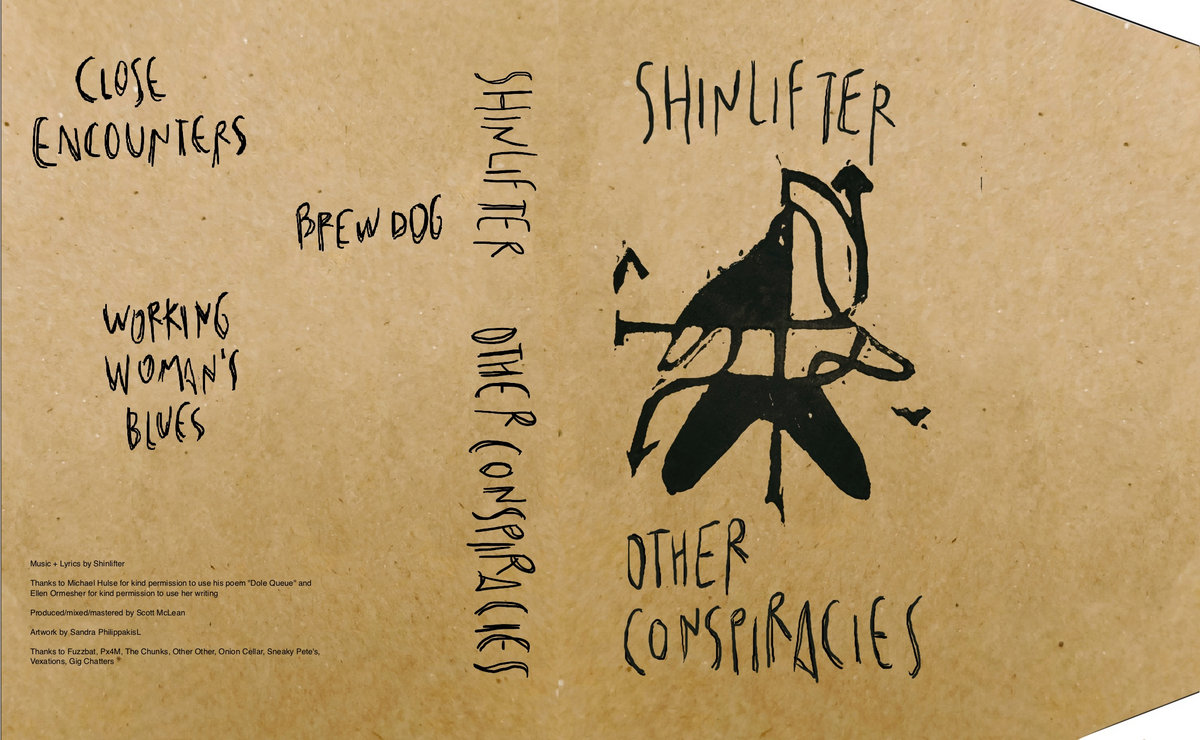 CLOSE
ENCOUNTERS
BREWDOG
WORKING
WOMAN'S
BLUES
Music + Lyrics by Shinlifter
Thanks to Michael Hulse for kind permission to use his poem "Dole Queue" and
Ellen Ormesher for kind permission to use her writing
Produced/mixed/mastered by Scott McLean
Artwork by Sandra PhilippakisL
Thanks to Fuzzbat, Px4M, The Chunks, Other Other, Onion Cellar, Sneaky Pete's,
Vexations, Gig Chatters
SHINLIFTER OTHER CONSPIRACIES
SHINLIFTER
OTHER
CONSPIRACIES